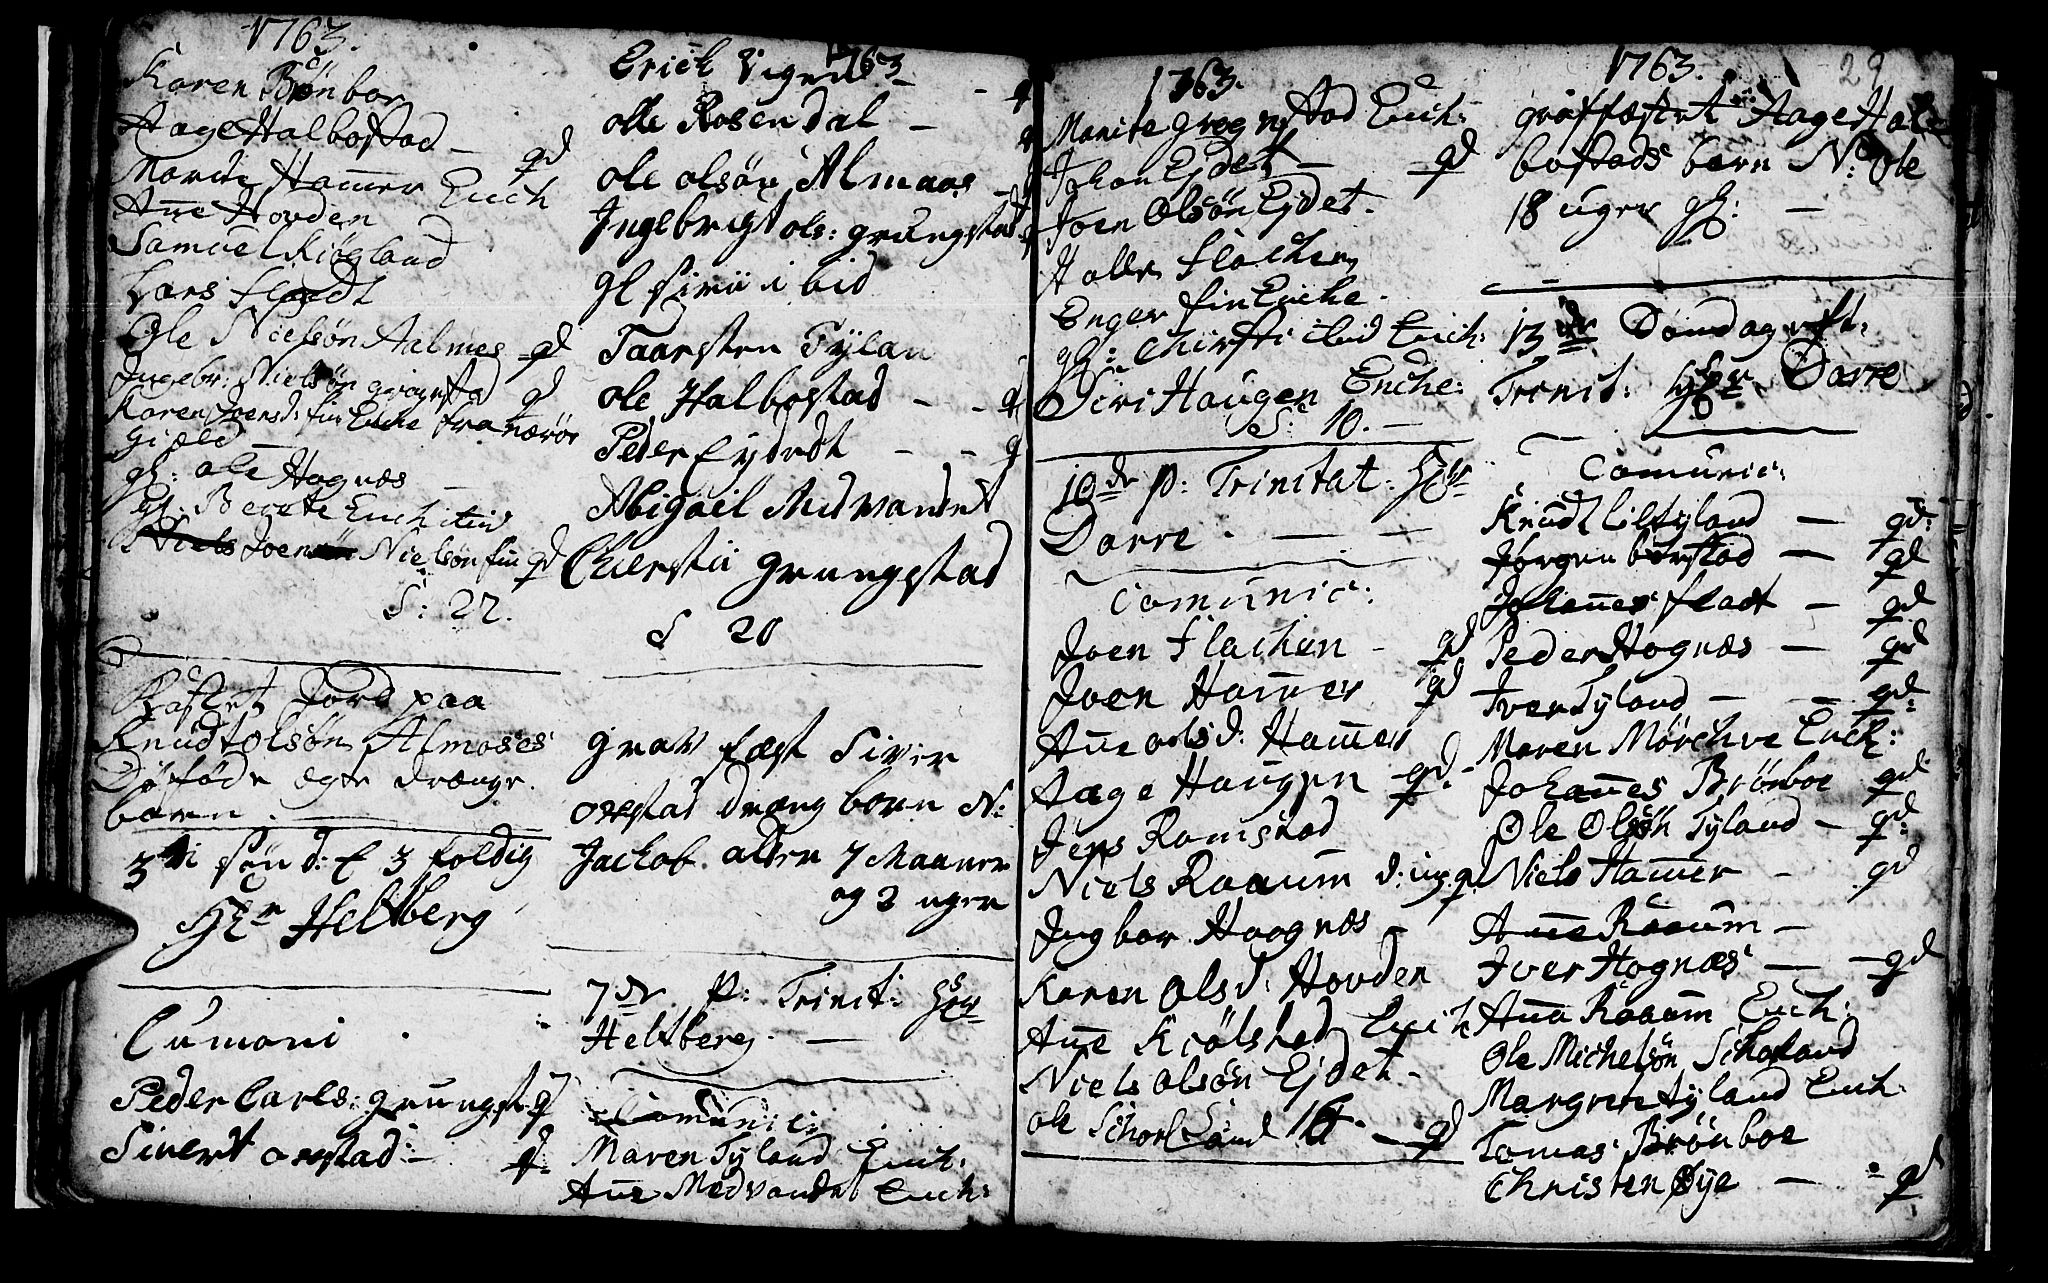 1763.
Karen Brönboe
Aage Halbostad -
Marit Hammer Ench qd
Anne Hovden
Samuel Kiögland
Lars Fladt
Ole Nielsön Aalmes - qd
Ingebr: Nielsön grogstad qd
Karen Joensd: fin Enche fra nærös
giæld -
gl: ole Hognæs -
gl: Berete Ench
Niels Joen Nielsön fin qd
S: 22.
Kastet Jord paa
Knud olsön Almoses
Döföde ægte drænge
barn.
3die sönd: f 3 foldig
Hr Heltberg
Cumoni
Peder Carls: grungst: q
Sivert orestad - q
1763
Erich Vigen - q
olle Rosendal - q
ole olsön Almaas - q
Ingebrigt ols: grungstad q
gl siri i bid
Taarsten Tÿlan
ole Halbostad - - q
Peder Eydedt - - q
Abigaël Medvandet
Chiersti grungstad
S 20
grav fæst Siver
orestad dræng barn N:
Jackob. alder 7 Maaner
og 2 uger
7de p: Trinit: Hr
Heltberg. -
Comunic:
Maren Tyland Ench:
Anne Medvande Ench:
1763.
Marite grogstad Ench:
Johan Ejdet - qd
Joen Olsön Ejdet.
Haller flachen
Enger fin Enche.
gl: Chirsti Lid Ench:
Siri Haugen Enche:
S: 10. -
10de p: Trinitat: Hr
Darre. - -
Comunic:
Joen Flachen - qd
Joen Hammer qd
Anne olsd: Hammer
Aage Haugen qd
Jens Ramstad
Niels Raaum d: ug. q
Ingbor Haagnæs -
Karen olsd: Hovden
Anne Kiölstad Ench
Niels Olsön Ejdet -
ole Schorland 16. - qd
1763. 29
gráffæstet Aage Hal
bostads barn N: Ole
18 uger gl: -
13de Sondag eft:
Trinit: Hr Darre
Comunic:
Knud Liltyland - qd:
Jörgen börstad - qd
Johannes fladt - qd
Peder Hognæs - qd
Iver Tyland - - qd:
Maren Mörchve Ench:
Johannes Brönboe qd
Ole Olsön Tyland - qd:
Niels Hammer - qd
Anne Raaum -
Iver Hognæs - - qd
Anna Raaum Ench:
Ole Michelsön Schorland
Margrete Tyland Ench:
Tomas Brönboe
Christen Öye - - qd